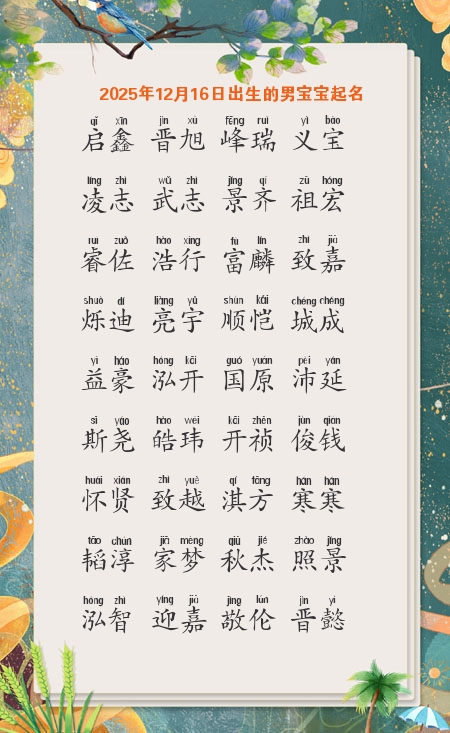 2025年12月16日出生的男宝宝起名
qǐ xīn jìn xù fēng ruì yì bǎo
启鑫 晋旭 峰瑞 义宝
líng zhì wǔ zhì jǐng qí zǔ hóng
凌志 武志 景齐 祖宏
ruì zuǒ hào xíng fù lín zhì jiā
睿佐 浩行 富麟 致嘉
shuò dí liàng yǔ shùn kǎi chéng chéng
烁迪 亮宇 顺恺 城成
yì háo hóng kāi guó yuán pèi yán
益豪 泓开 国原 沛延
sī yáo hào wěi kāi zhēn jùn qián
斯尧 皓玮 开祯 俊钱
huái xián zhì yuè qí fāng hán hán
怀贤 致越 淇方 寒寒
tāo chún jiā mèng qiū jié zhào jǐng
韬淳 家梦 秋杰 照景
hóng zhì yíng jiā jìng lún jìn yì
泓智 迎嘉 敬伦 晋懿